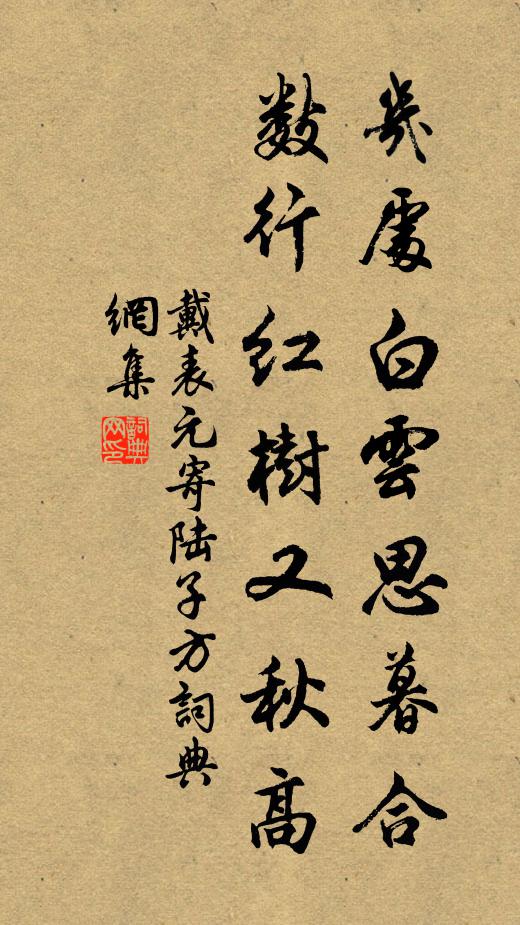 幾處白雲思暮合
數行紅樹又秋高
戴表元寄陸子方詞典
網集
詞典網印